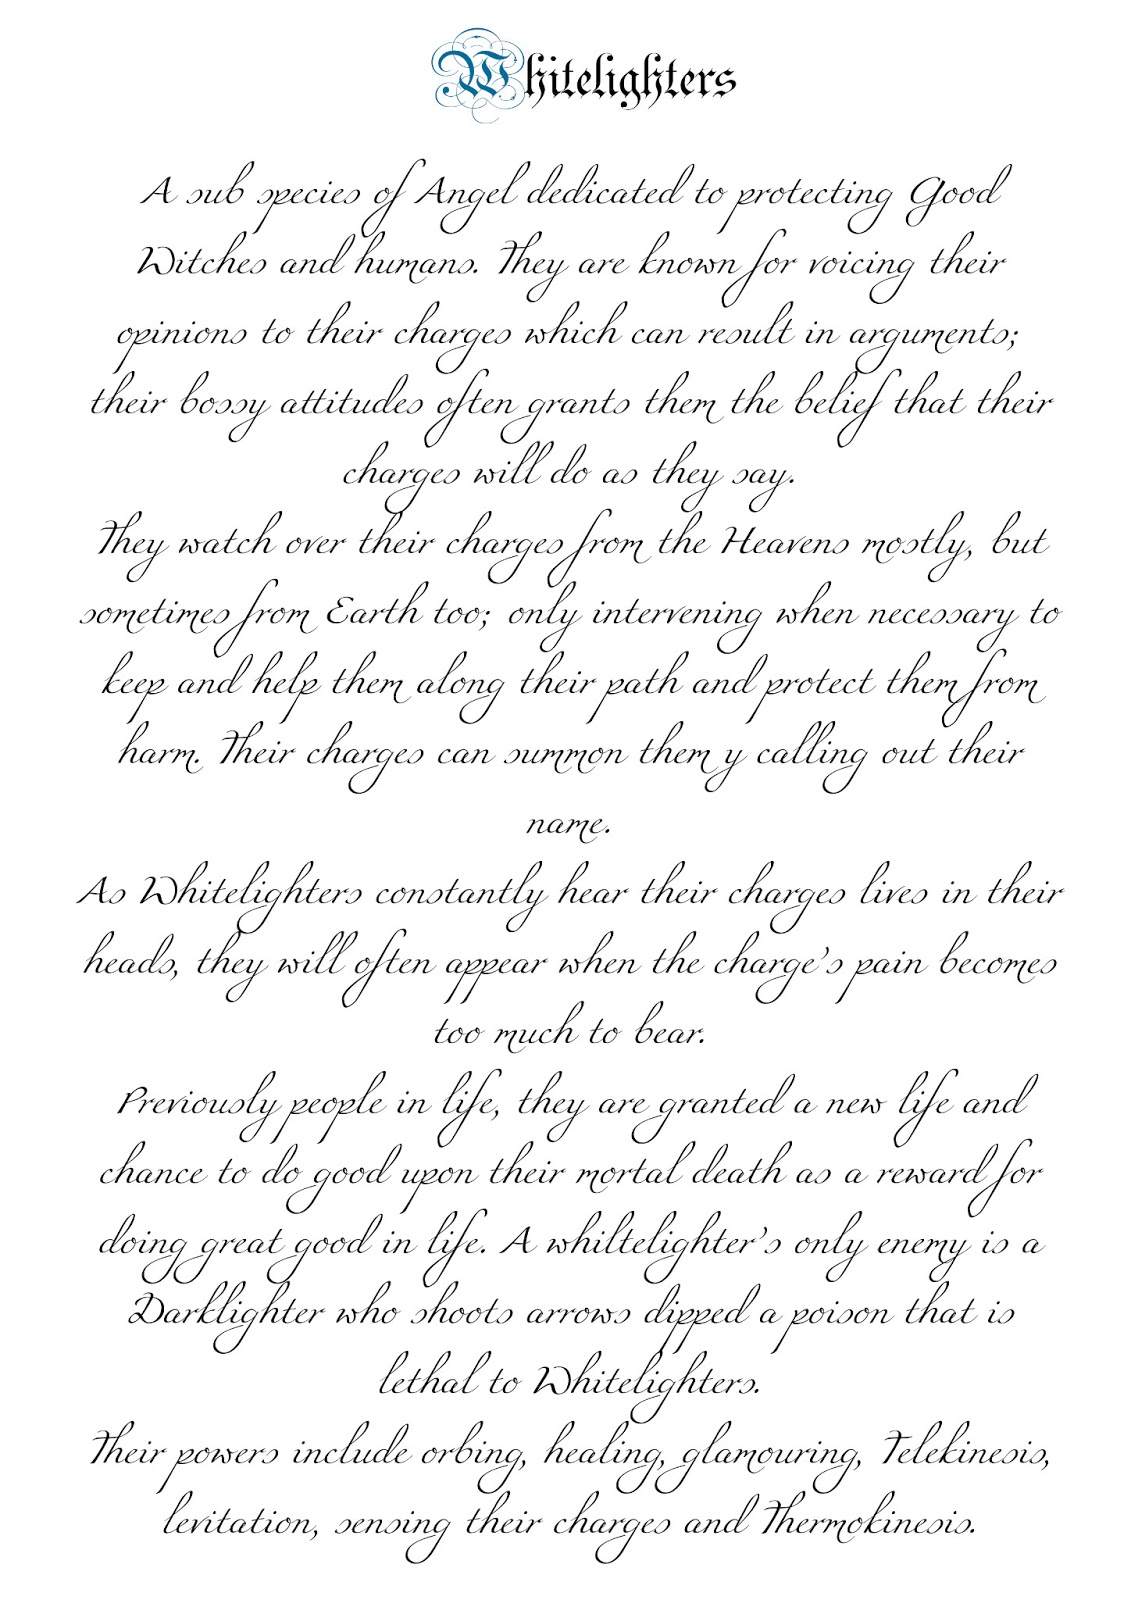 Whitelighters
A sub species of Angel dedicated to protecting Good
Witches and humans. They are known for voicing their
opinions to their charges which can result in arguments;
their bossy attitudes often grants them the belief that their
charges will do as they say.
They watch over their charges from the Heavens mostly, but
sometimes from Earth too; only intervening when necessary to
keep and help them along their path and protect them from
harm. Their charges can summon them y calling out their
name.
As Whitelighters constantly hear their charges lives in their
heads, they will often appear when the charge's pain becomes
too much to bear.
Previously people in life, they are granted a new life and
chance to do good upon their mortal death as a reward for
doing great good in life. A whiltelighter's only enemy is a
Darklighter who shoots arrows dipped a poison that is
lethal to Whitelighters.
Their powers include orbing, healing, glamouring, Telekinesis,
levitation, sensing their charges and Thermokinesis.